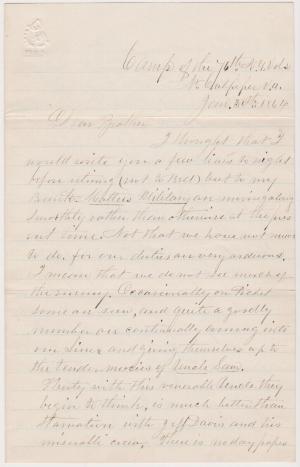 Camp of the 76th N.Y. Vols
Nr. Culpeper Va.
Jan. 1864
Dear Brother
I thought that I
would write you a few lines to night
before retiring (not to Bed) but to my
Bunk. Matters Military are moving along
smoothly rather than otherwise at the pres
ent time. Not that we have not much
to do, for our duties are very arduous.
I mean that we do not see much of
the enemy. Occasionally on Picket
some are seen, and quite a goodly
number are continually coming into
our Lines and giving themselves up to
the tender mercies of Uncle Sam.
Plenty with this venerable Uncle, they
begin to think, is much better than
Starvation with Jeff Davis and his
miserable crew. There is no day passes